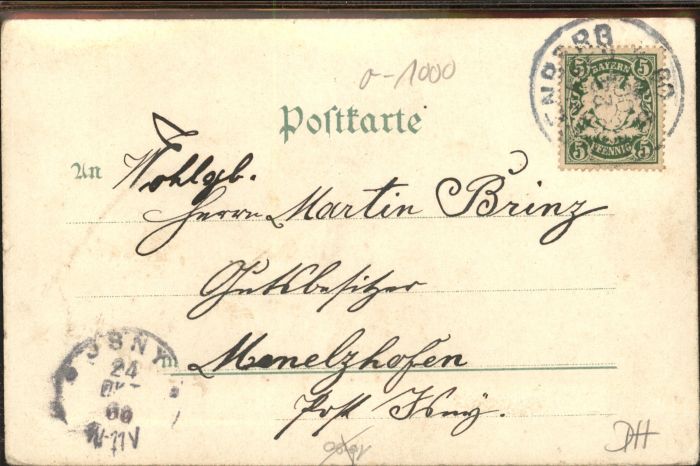 o-1000
Postkarte
BAYERN
5 5
5 PFENNIG 5
An Wohlgb.
Herrn Martin Brinz
Gutsbesitzer
Menelzhofen
Post Isny.
JSNY
24
OKT
00
DH